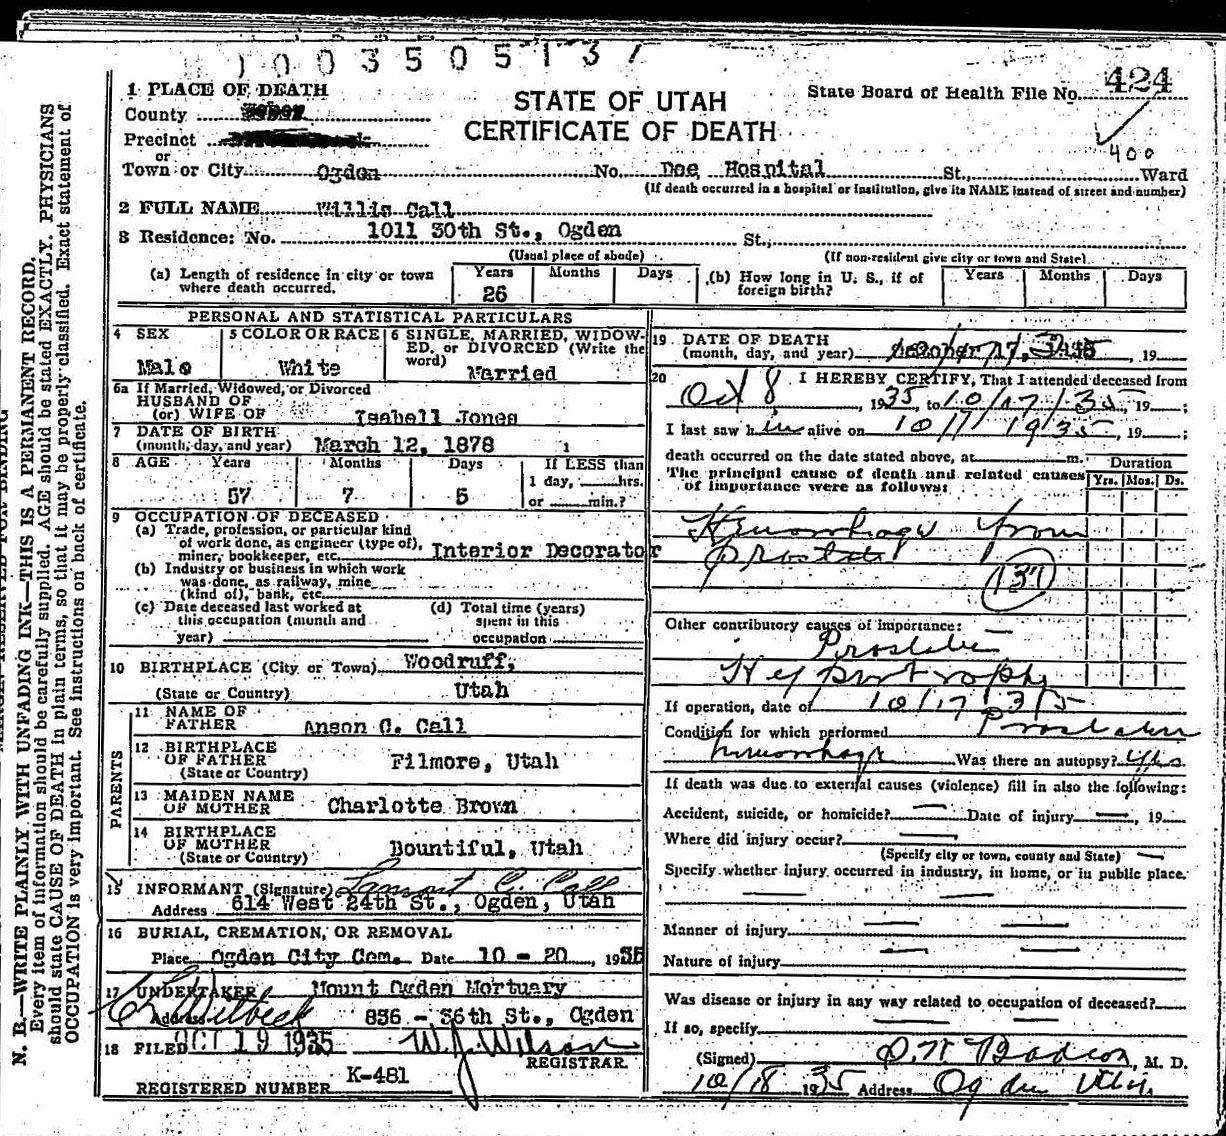 1003505137
1 PLACE OF DEATH
County
Precinct
or
Town or City Ogden No. Dee Hospital St., Ward
STATE OF UTAH
CERTIFICATE OF DEATH
State Board of Health File No. 424
400
(If death occurred in a hospital or institution, give its NAME instead of street and number)
2 FULL NAME Willis Call
3 Residence: No. 1011 30th St., Ogden St.,
(Usual place of abode) (If non-resident give city or town and State)
(a) Length of residence in city or town where death occurred. Years 26 Months Days (b) How long in U. S., if of foreign birth? Years Months Days
PERSONAL AND STATISTICAL PARTICULARS
4 SEX Male
5 COLOR OR RACE White
6 SINGLE, MARRIED, WIDOWED, or DIVORCED (Write the word) Married
6a If Married, Widowed, or Divorced
HUSBAND OF
(or) WIFE OF Isabell Jones
7 DATE OF BIRTH
(month, day, and year) March 12, 1878
8 AGE Years 57 Months 7 Days 5 If LESS than 1 day, hrs. or min.?
9 OCCUPATION OF DECEASED
(a) Trade, profession, or particular kind
of work done, as engineer (type of),
miner, bookkeeper, etc. Interior Decorator
(b) Industry or business in which work
was done, as railway, mine
(kind of), bank, etc.
(c) Date deceased last worked at
this occupation (month and
year)
(d) Total time (years)
spent in this
occupation
10 BIRTHPLACE (City or Town) Woodruff,
(State or Country) Utah
PARENTS
11 NAME OF
FATHER Anson C. Call
12 BIRTHPLACE
OF FATHER Filmore, Utah
(State or Country)
13 MAIDEN NAME
OF MOTHER Charlotte Brown
14 BIRTHPLACE
OF MOTHER Bountiful, Utah
(State or Country)
15 INFORMANT (Signature) Lamont C. Call
Address 614 West 24th St., Ogden, Utah
16 BURIAL, CREMATION, OR REMOVAL
Place Ogden City Cem. Date 10 - 20, 1935
17 UNDERTAKER Mount Ogden Mortuary
Address 836 - 36th St., Ogden
18 FILED OCT 19 1935 W. J. Wilson
REGISTRAR
REGISTERED NUMBER K-481
19 DATE OF DEATH
(month, day, and year) , 19
20 I HEREBY CERTIFY, That I attended deceased from
Oct 8, 1935, to 10/17/35, 19 ;
I last saw him alive on 10/17 1935, 19 ;
death occurred on the date stated above, at m.
The principal cause of death and related causes
of importance were as follows:
Duration
Yrs. Mos. Ds.
Hemorrhage from
prostate
137
Other contributory causes of importance:
Prostatic
Hypertrophy
If operation, date of 10/17/35
Condition for which performed Prostatic
hemorrhage Was there an autopsy? Yes
If death was due to external causes (violence) fill in also the following:
Accident, suicide, or homicide? Date of injury , 19
Where did injury occur?
(Specify city or town, county and State)
Specify whether injury occurred in industry, in home, or in public place.
Manner of injury
Nature of injury
Was disease or injury in any way related to occupation of deceased?
If so, specify
(Signed) , M. D.
10/18 1935 Address Ogden Utah
N. B.—WRITE PLAINLY WITH UNFADING INK—THIS IS A PERMANENT RECORD.
Every item of information should be carefully supplied. AGE should be stated EXACTLY. PHYSICIANS
should state CAUSE OF DEATH in plain terms, so that it may be properly classified. Exact statement of
OCCUPATION is very important. See instructions on back of certificate.